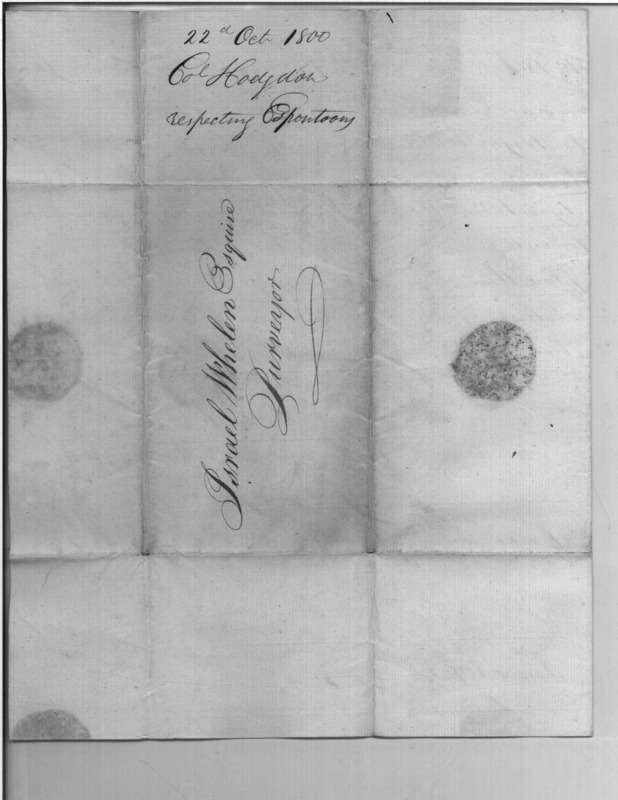 22d Oct 1800
Col Hodgdon
respecting Espontoons
Israel Whelen Esquire
Purveyor